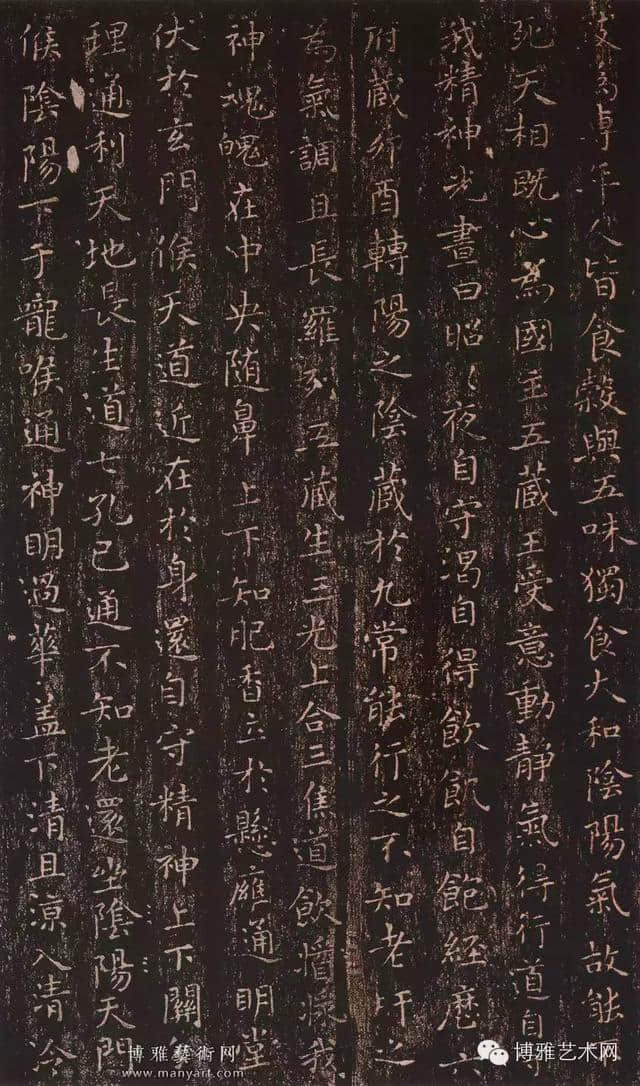 為專年人皆食穀與五味獨食大和陰陽氣故能
死天相既心為國主五藏王受意動靜氣得行道自守
我精神光晝日昭〻夜自守渴自得飲飢自飽經歷六
附藏卯酉轉陽之陰藏於九常能行之不知老肝之
為氣調且長羅列五藏生三光上合三焦道飲漿我
神魂魄在中央随鼻上下知肥香立於懸廱通明堂
伏於玄門候天道近在於身還自守精神上下關
理通利天地長生道七孔已通不知老還坐陰陽天門
候陰陽下于嚨喉通神明過華盖下清且涼入清泠
博雅藝術网
www.manyart.com
博雅艺术网